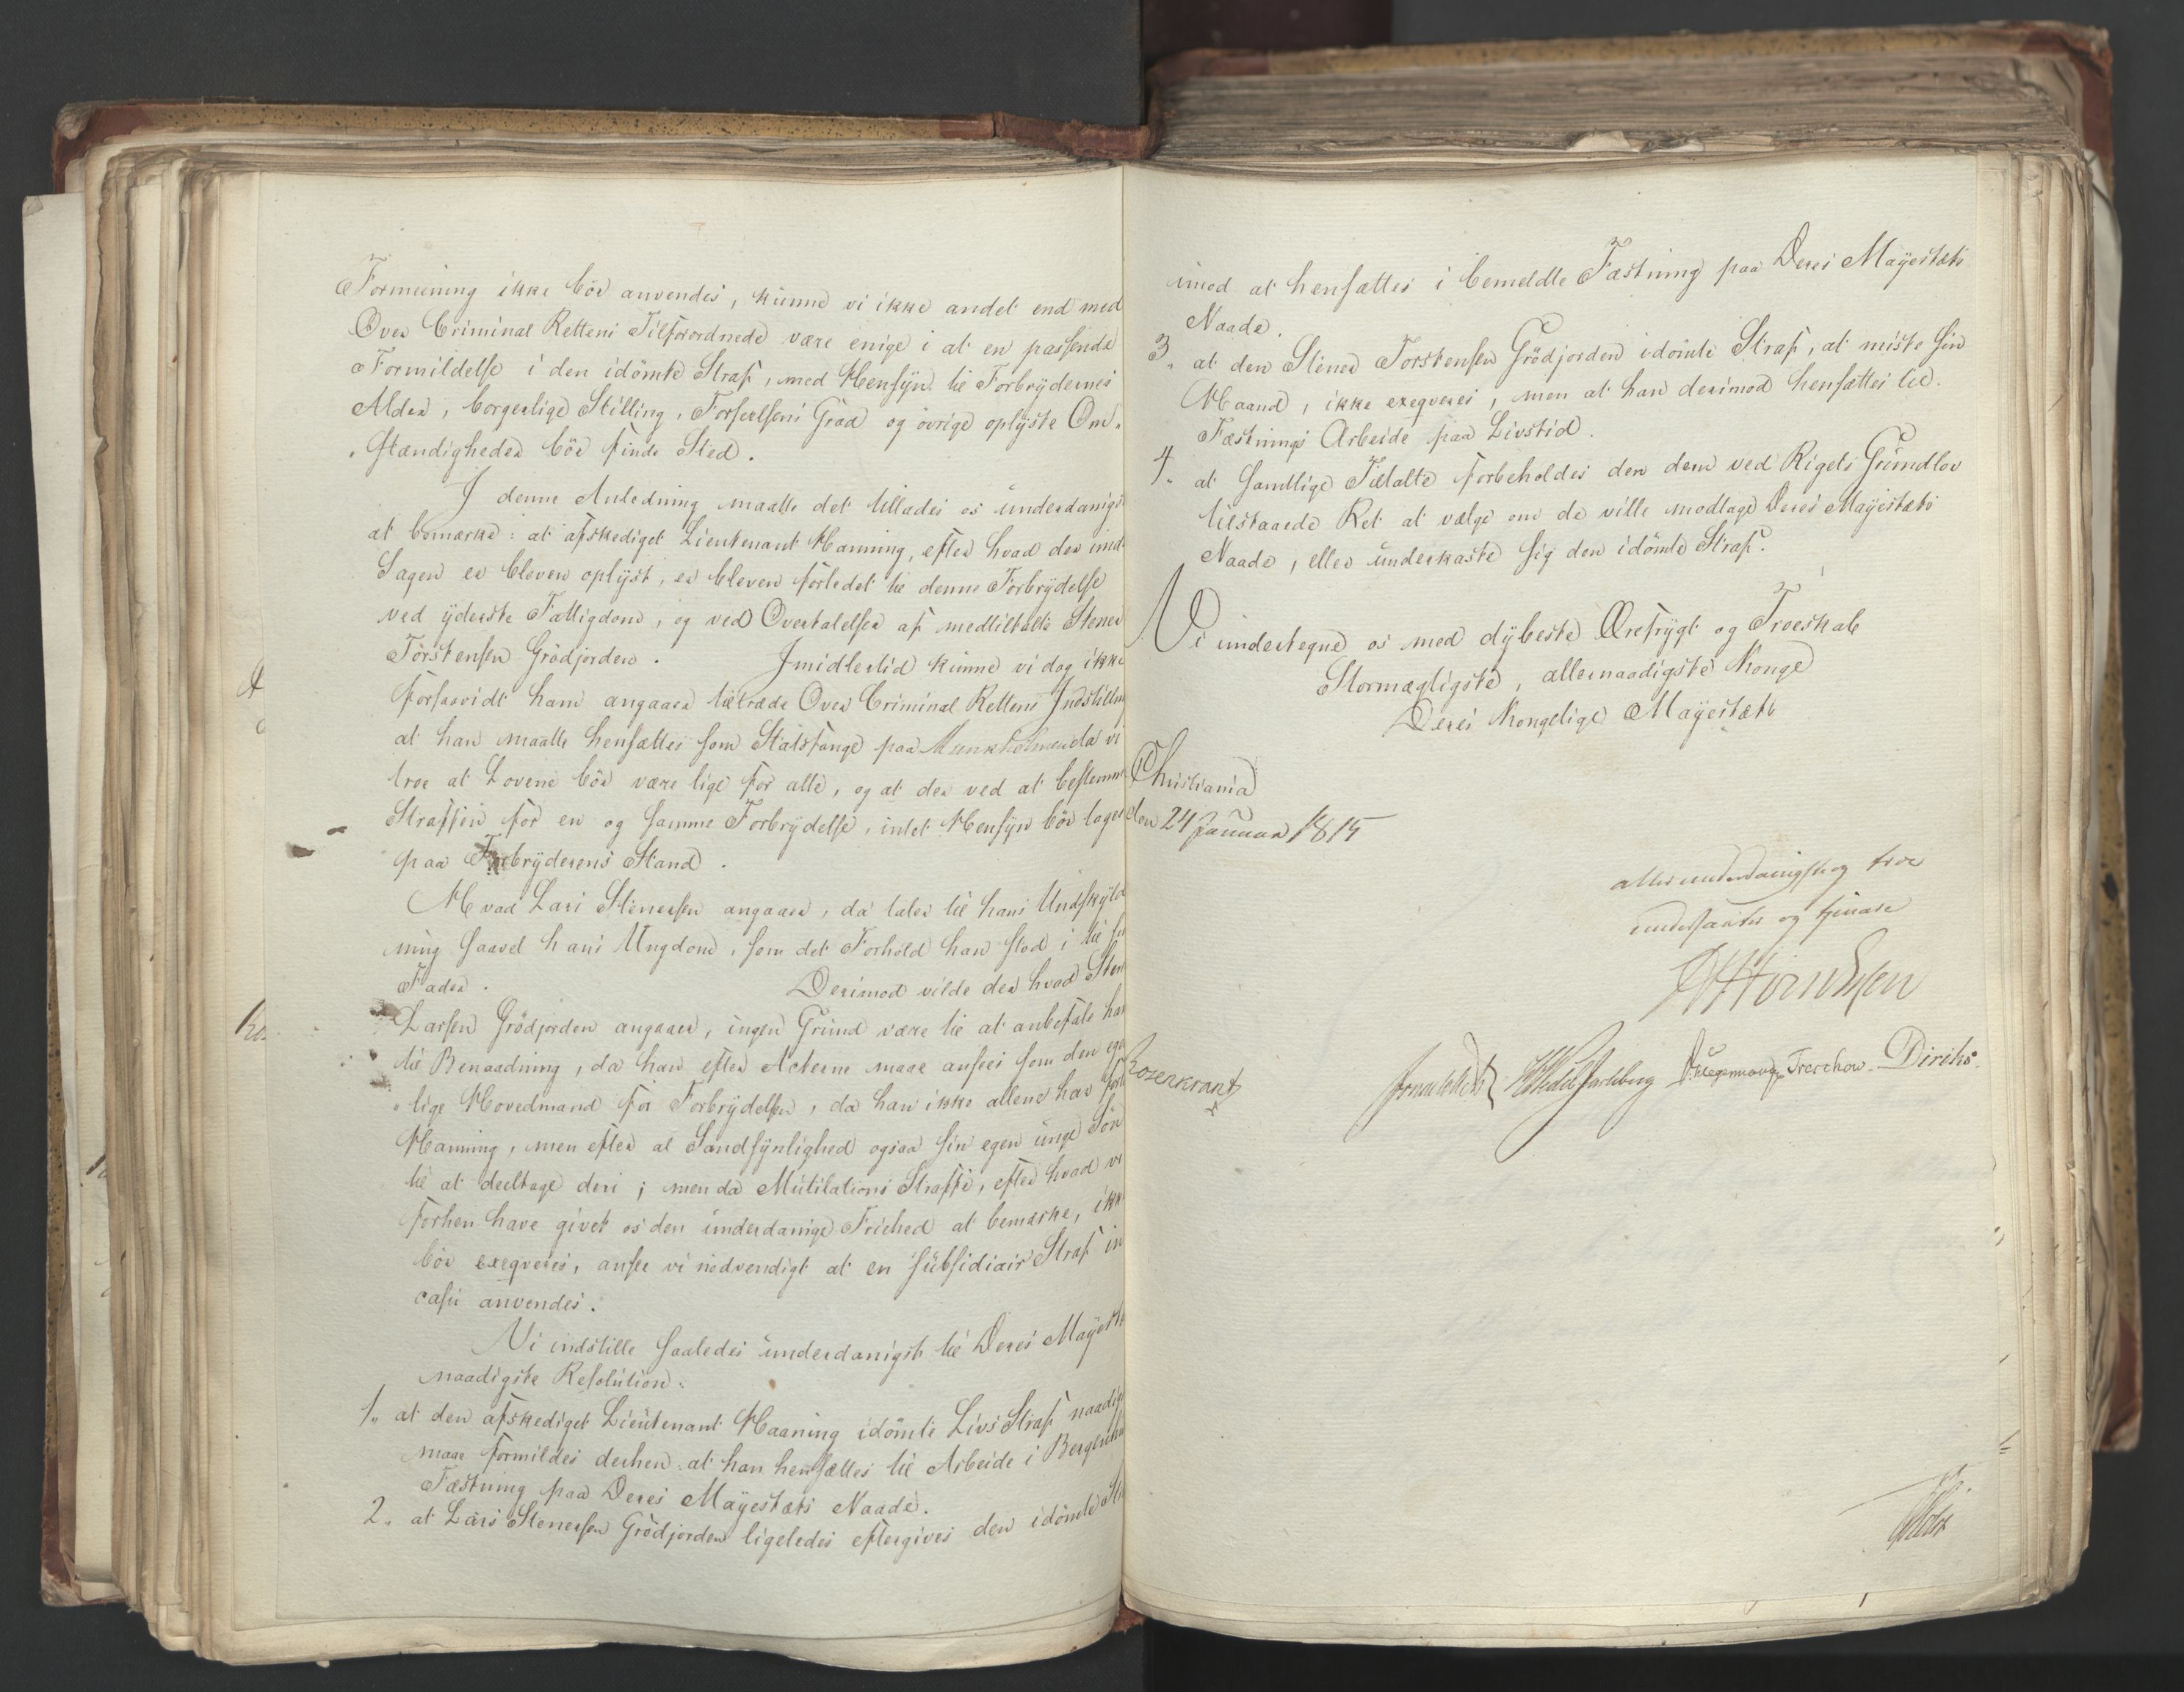 Formeening ikke bör anvendes, kunne vi ikke andet end med
Over Criminal Rettens Tilforordnede være enige i at en passende
Formildelse i den idömte Straf, med Hensyn til Forbrydernes
Alder, borgerlige Stilling, Forseelsens Grad og övrige oplyste Om-
stændigheder bör finde Sted.
I denne Anledning maatte det tillades os underdanigst
at bemærke: at afskediget Lieutenant Hanning, efter hvad der
Sagen er bleven oplyst, er bleven forledet til denne Forbrydelse
ved yderste Fattigdom, og ved Overtalelser af medtiltalte Stener
Torstensen Grödjorden. Imidlertid kunne vi dog ikke
forsaavidt ham angaaer tiltræde Over Criminal Rettens Indstilling
at han maatte hensættes som Statsfange paa Munkholmen da vi
troe at Lovene bör være lige for alle, og at der ved at bestemme
Straffen for en og samme Forbrydelse, intet Hensyn bör tages
paa Forbryderens Stand.
Hvad Lars Stenersen angaaer, da taler til hans Undskyld
ning saavel hans Ungdom, som det Forhold han stod i til
Fader. Derimod vilde der hvad
Larsen Grödjorden angaaer, ingen Grund være til at anbefale ham
til Benaadning, da han efter Acterne maae ansees som den
lige Hovedmand for Forbrydelsen, da han ikke allene har
Hanning, men efter al Sandsynlighed ogsaa sin egen unge Sön
til at deeltage deri; men da Mutilations Straffe, efter hvad vi
forhen have givet os den underdanige Friehed at bemærke, ikke
bör exeqveres, ansee vi nödvendigt at en subsidiair Straf in
casu anvendes.
Vi indstille saaledes underdanigst til Deres Mayestæts
naadigste Resolution:
1, at den afskediget Lieutenant Haaning idömte Livs Straf
maae formildes derhen: at han hensættes til Arbeide i Bergenhuus
Fæstning paa Deres Mayestæts Naade.
2, at Lars Stenersen Grödjorden ligeledes eftergives den idömte
imod at hensættes i bemeldte Fæstning paa Deres Mayestæts
Naade.
3, at den Stener Torstensen Grödjorden idömte Straf, at miste sin
Haand, ikke exeqveres, men at han derimod hensættes til
Fæstnings Arbeide paa Livstid.
4, at samtlige Tiltalte forbeholdes den dem ved Rigets Grundlov
tilstaaede Ret at vælge om de ville modtage Deres Mayestæts
Naade, eller underkaste sig den idömte Straf.
Vi undertegne os med dybeste Ærefrygt og Troeskab
Stormægtigste, allernaadigste Konge
Deres Kongelige Mayestæts
Christiania
den 24 Januar 1815
allerunderdanigste og troe
undersaatter og tjenere
Rosenkrantz HWedel Jarlsberg Hegermann Treschow Diriks